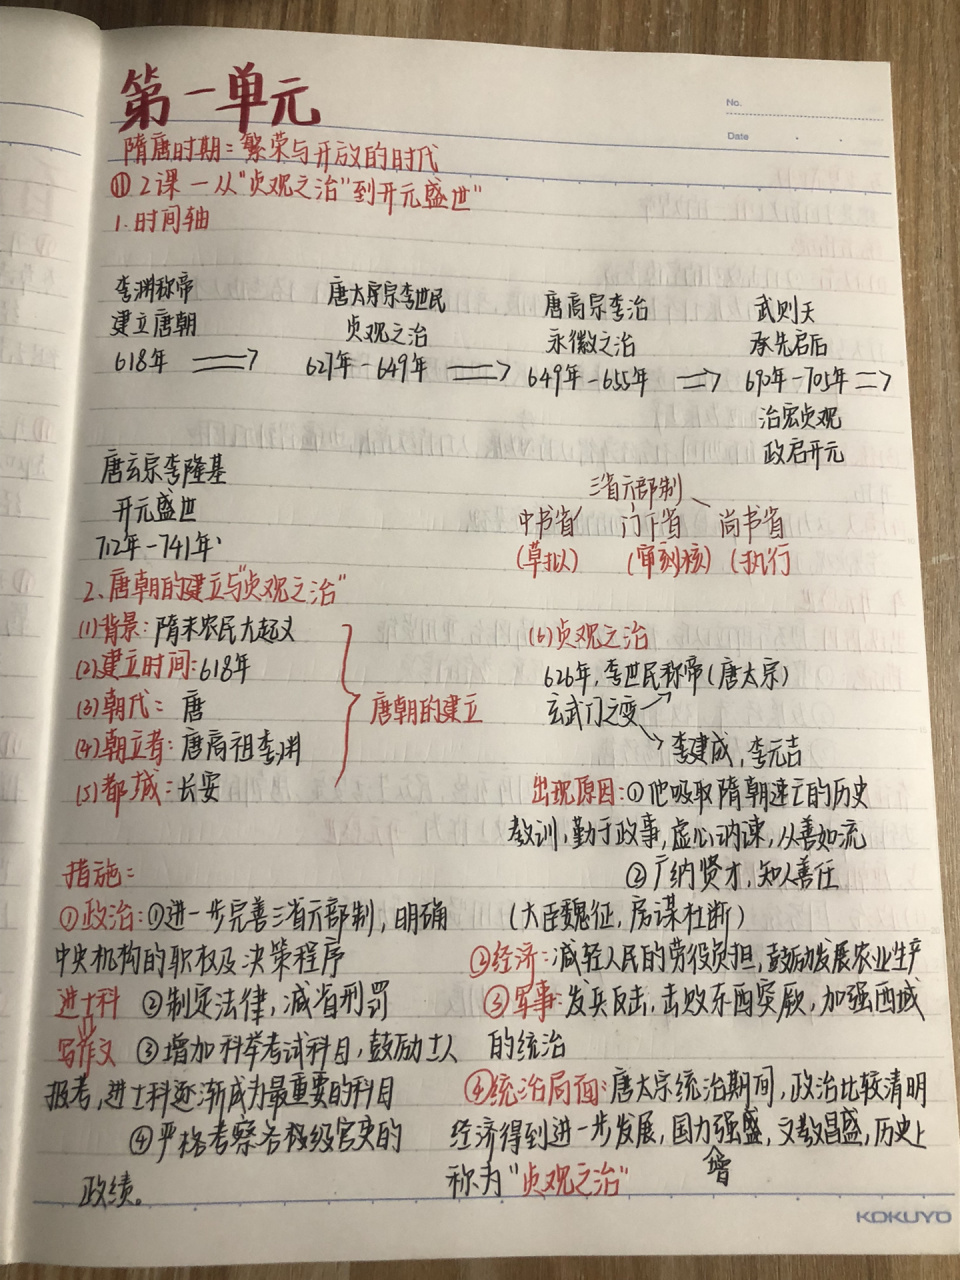 第一单元
No.
Date
隋唐时期:繁荣与开放的时代
⑴2课—从"贞观之治"到开元盛世"
1.时间轴
李渊称帝
建立唐朝
618年
唐太宗李世民
贞观之治
627年-649年
唐高宗李治
永徽之治
649年-655年
武则天
承先启后
690年-705年
治宏贞观
政启开元
唐玄宗李隆基
开元盛世
712年-741年
三省六部制
中书省 门下省 尚书省
(草拟) (审核) (执行
2、唐朝的建立与"贞观之治"
(1)背景:隋末农民大起义
(2)建立时间:618年
(3)朝代:唐
(4)朝立者:唐高祖李渊
(5)都城:长安
唐朝的建立
措施:
①政治:①进一步完善三省六部制,明确
中央机构的职权及决策程序
进士科 ②制定法律,减省刑罚
写作文 ③增加科举考试科目,鼓励士人
报考,进士科逐渐成为最重要的科目
④严格考察各级官吏的
政绩。
(6)贞观之治
626年,李世民称帝(唐太宗)
玄武门之变
李建成,李元吉
出现原因:①他吸取隋朝速亡的历史
教训,勤于政事,虚心纳谏,从善如流
②广纳贤才,知人善任
(大臣魏征,房谋杜断)
②经济:减轻人民的劳役负担,鼓励发展农业生产
③军事:发兵反击,击败东西突厥,加强西域
的统治
④统治局面:唐太宗统治期间,政治比较清明
经济得到进一步发展,国力强盛,文教昌盛,历史上
增
称为"贞观之治"
KOKUYO